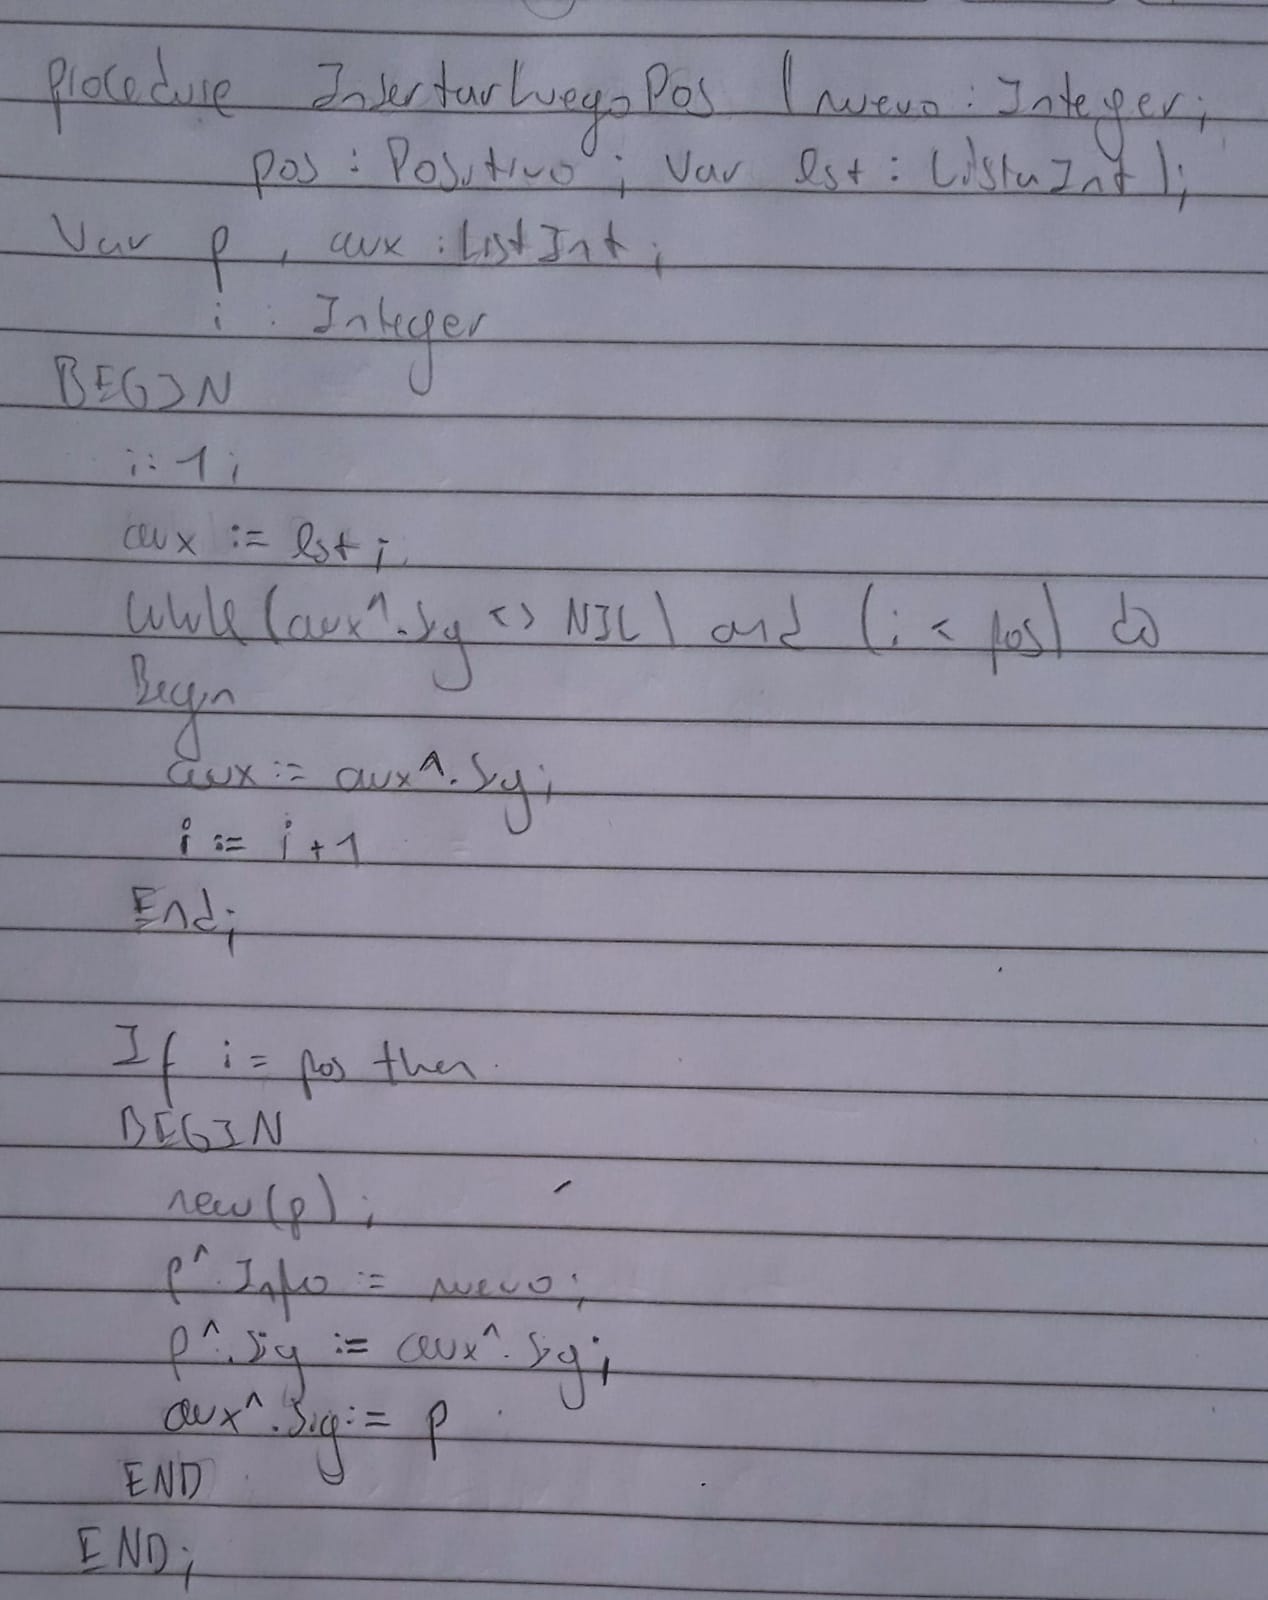 procedure InsertarLuegoPos (nuevo : Integer;
pos : Positivo ; Var lst : ListaInt );
Var p , aux : ListInt ;
i : Integer
BEGIN
i: 1;
aux := lst ;
while (aux^.sig <> NIL) and (i < pos) do
Begin
aux := aux^.Sig;
i := i + 1
End;
If i = pos then
BEGIN
new (p) ;
p^.Info := nuevo ;
p^.Sig := aux^.Sig ;
aux^.Sig := p
END
END;